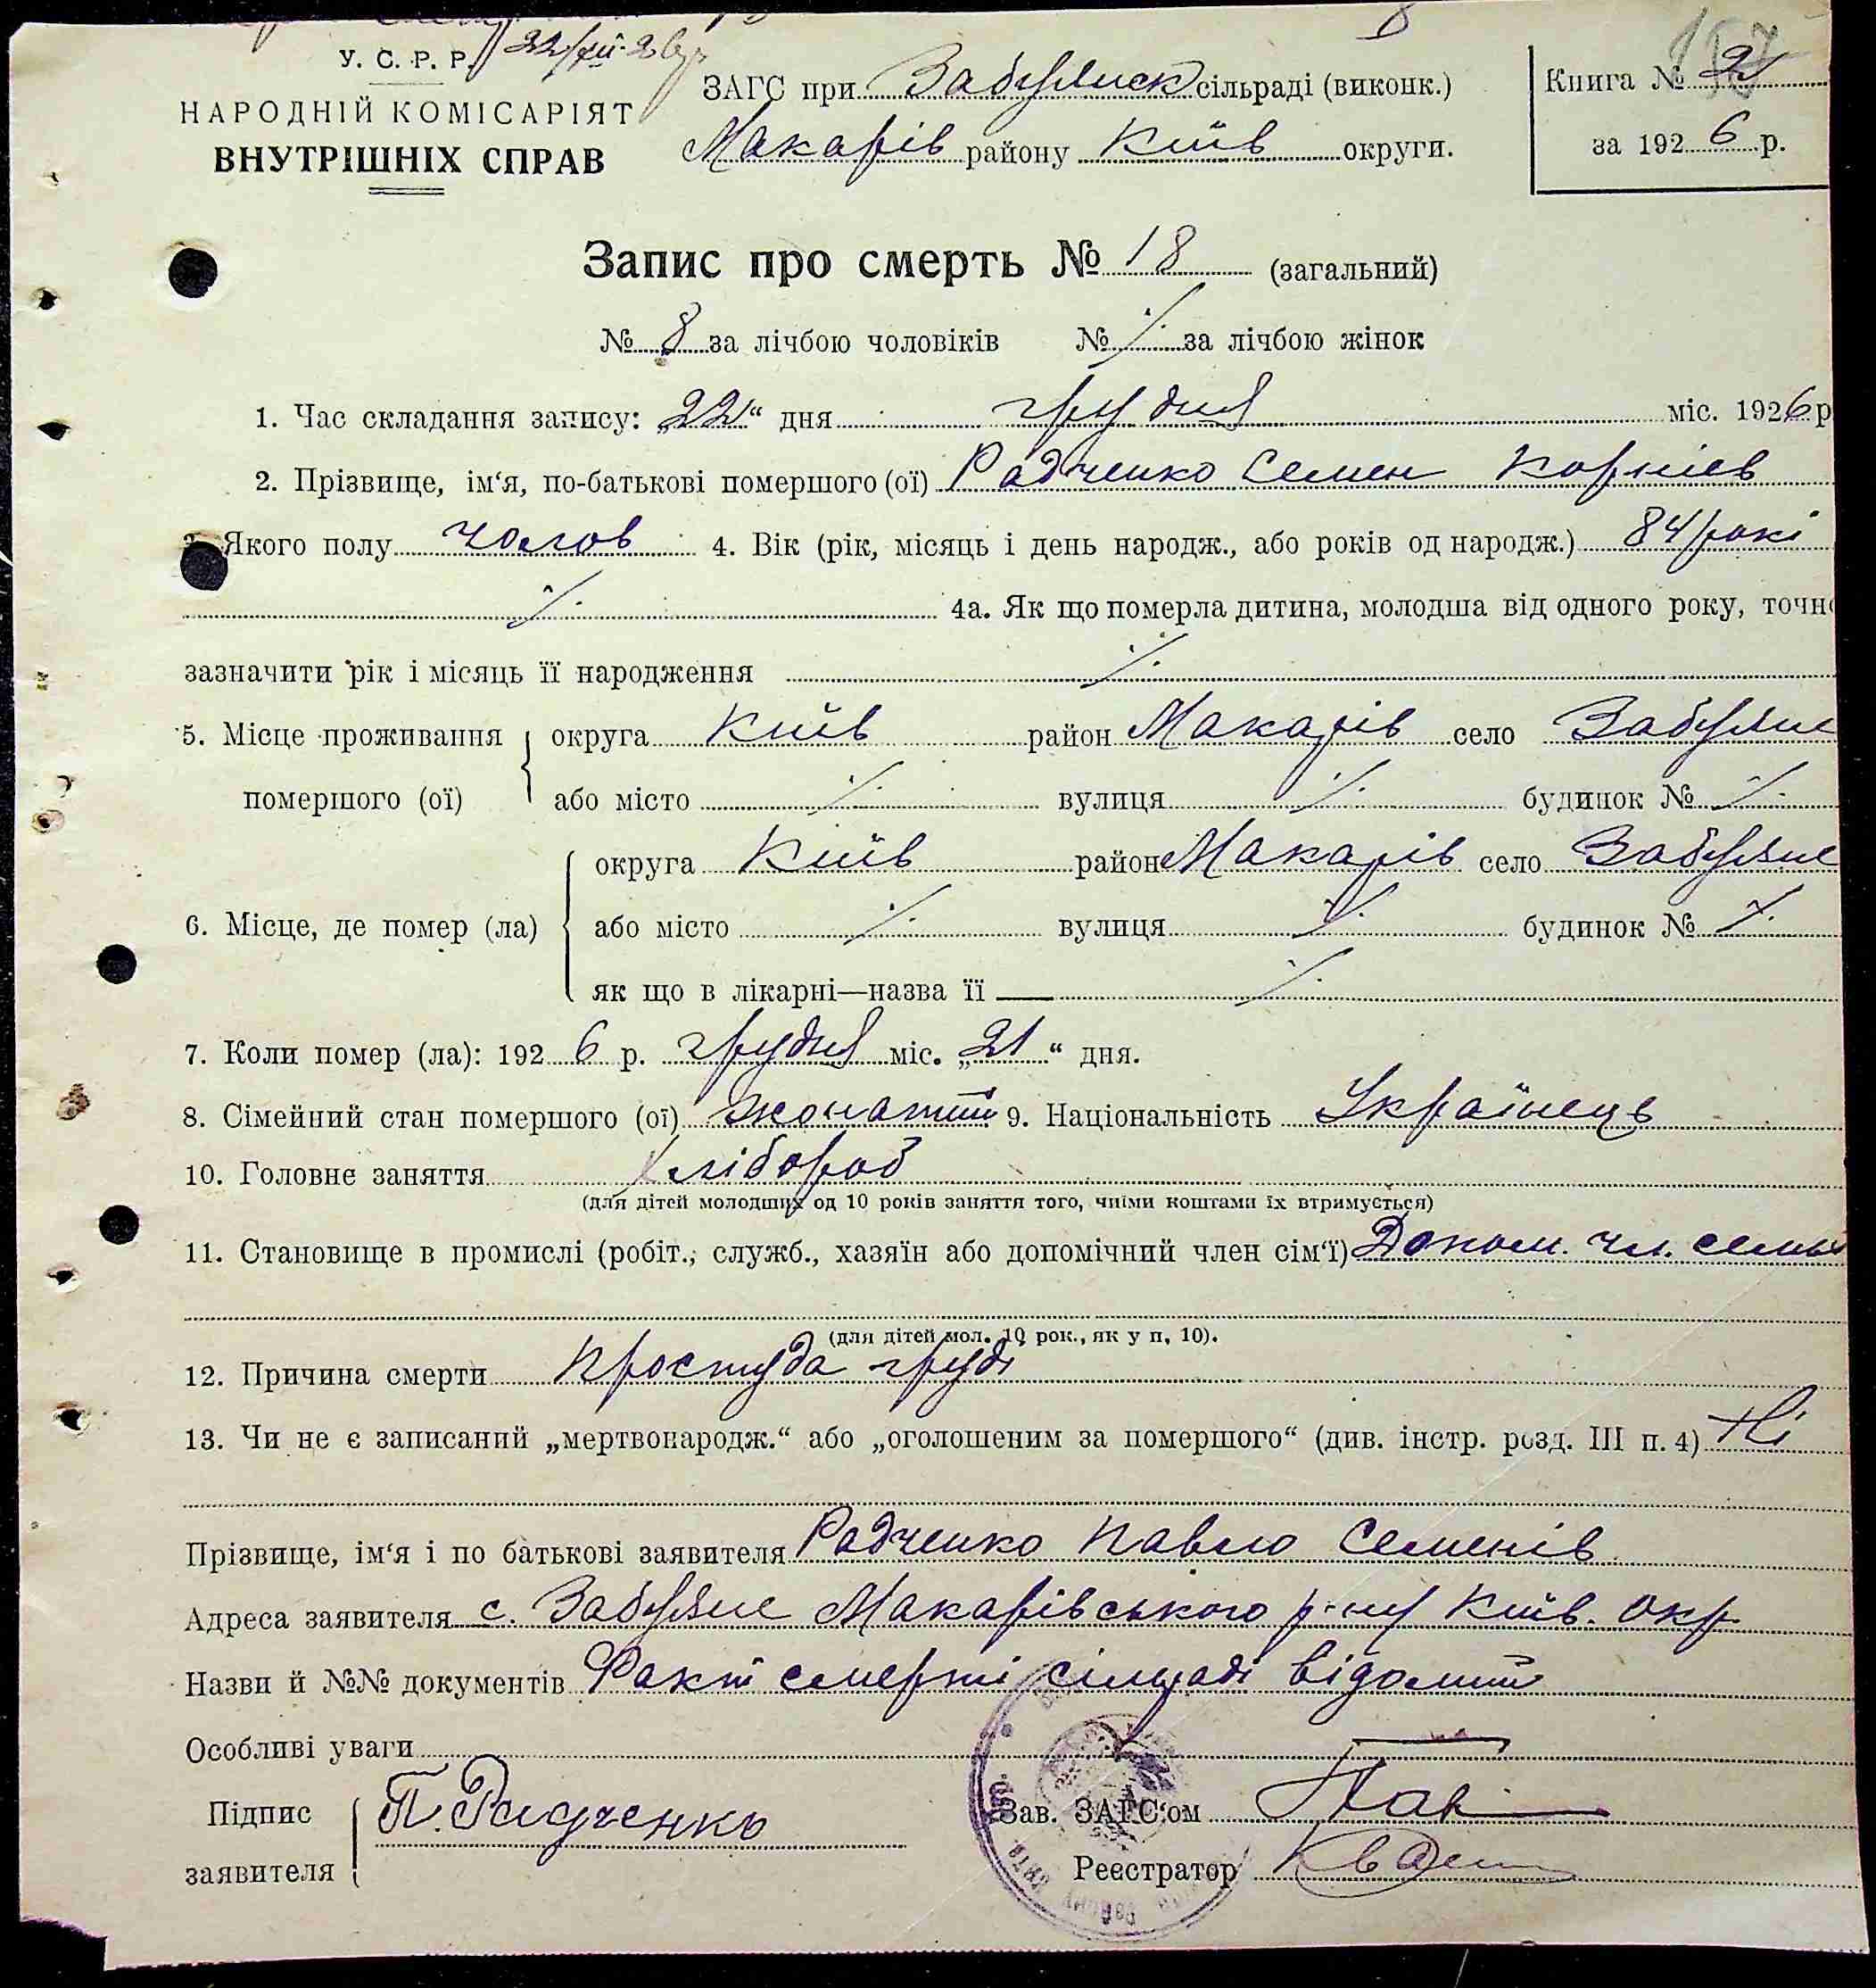 22/XII-26 р
У. С. Р. Р.
НАРОДНІЙ КОМІСАРІЯТ
ВНУТРІШНІХ СПРАВ
ЗАГС при Забуянск сільраді (виконк.)
Макарів району Київ округи.
Книга № 2
за 1926 р.
Запис про смерть № 18 (загальний)
№ 8 за лічбою чоловіків № ⁒ за лічбою жінок
1. Час складання запису: „22“ дня грудня міс. 1926 р
2. Прізвище, ім‘я, по-батькові помершого (ої) Радченко Семен Корніев
3. Якого полу чолов 4. Вік (рік, місяць і день народж., або років од народж.) 84 рокі
⁒ 4а. Як що померла дитина, молодша від одного року, точно
зазначити рік і місяць її народження ⁒
5. Місце проживання помершого (ої) округа Київ район Макарів село Забуяне
або місто ⁒ вулиця ⁒ будинок № ⁒
6. Місце, де помер (ла) округа Київ район Макарів село Забуяне
або місто ⁒ вулиця ⁒ будинок № ⁒
як що в лікарні—назва її ⁒
7. Коли помер (ла): 1926 р. грудня міс. „21“ дня.
8. Сімейний стан помершого (ої) жонатий 9. Національність Українець
10. Головне заняття Хлібороб
(для дітей молодших од 10 років заняття того, чиїми коштами їх втримується)
11. Становище в промислі (робіт., служб., хазяїн або допомічний член сім‘ї) Допом. чл. семьи
(для дітей мол. 10 рок., як у п, 10).
12. Причина смерти Простуда груді
13. Чи не є записаний „мертвонародж.“ або „оголошеним за помершого“ (див. інстр. розд. III п. 4) Ні
Прізвище, ім‘я і по батькові заявителя Радченко Павло Семенів
Адреса заявителя с. Забуяне Макарівського р-ну Київ. окр
Назви й №№ документів Факт смерті сільраді відомий
Особливі уваги
Підпис заявителя П. Радченко
Зав. ЗАГС‘ом
Реєстратор